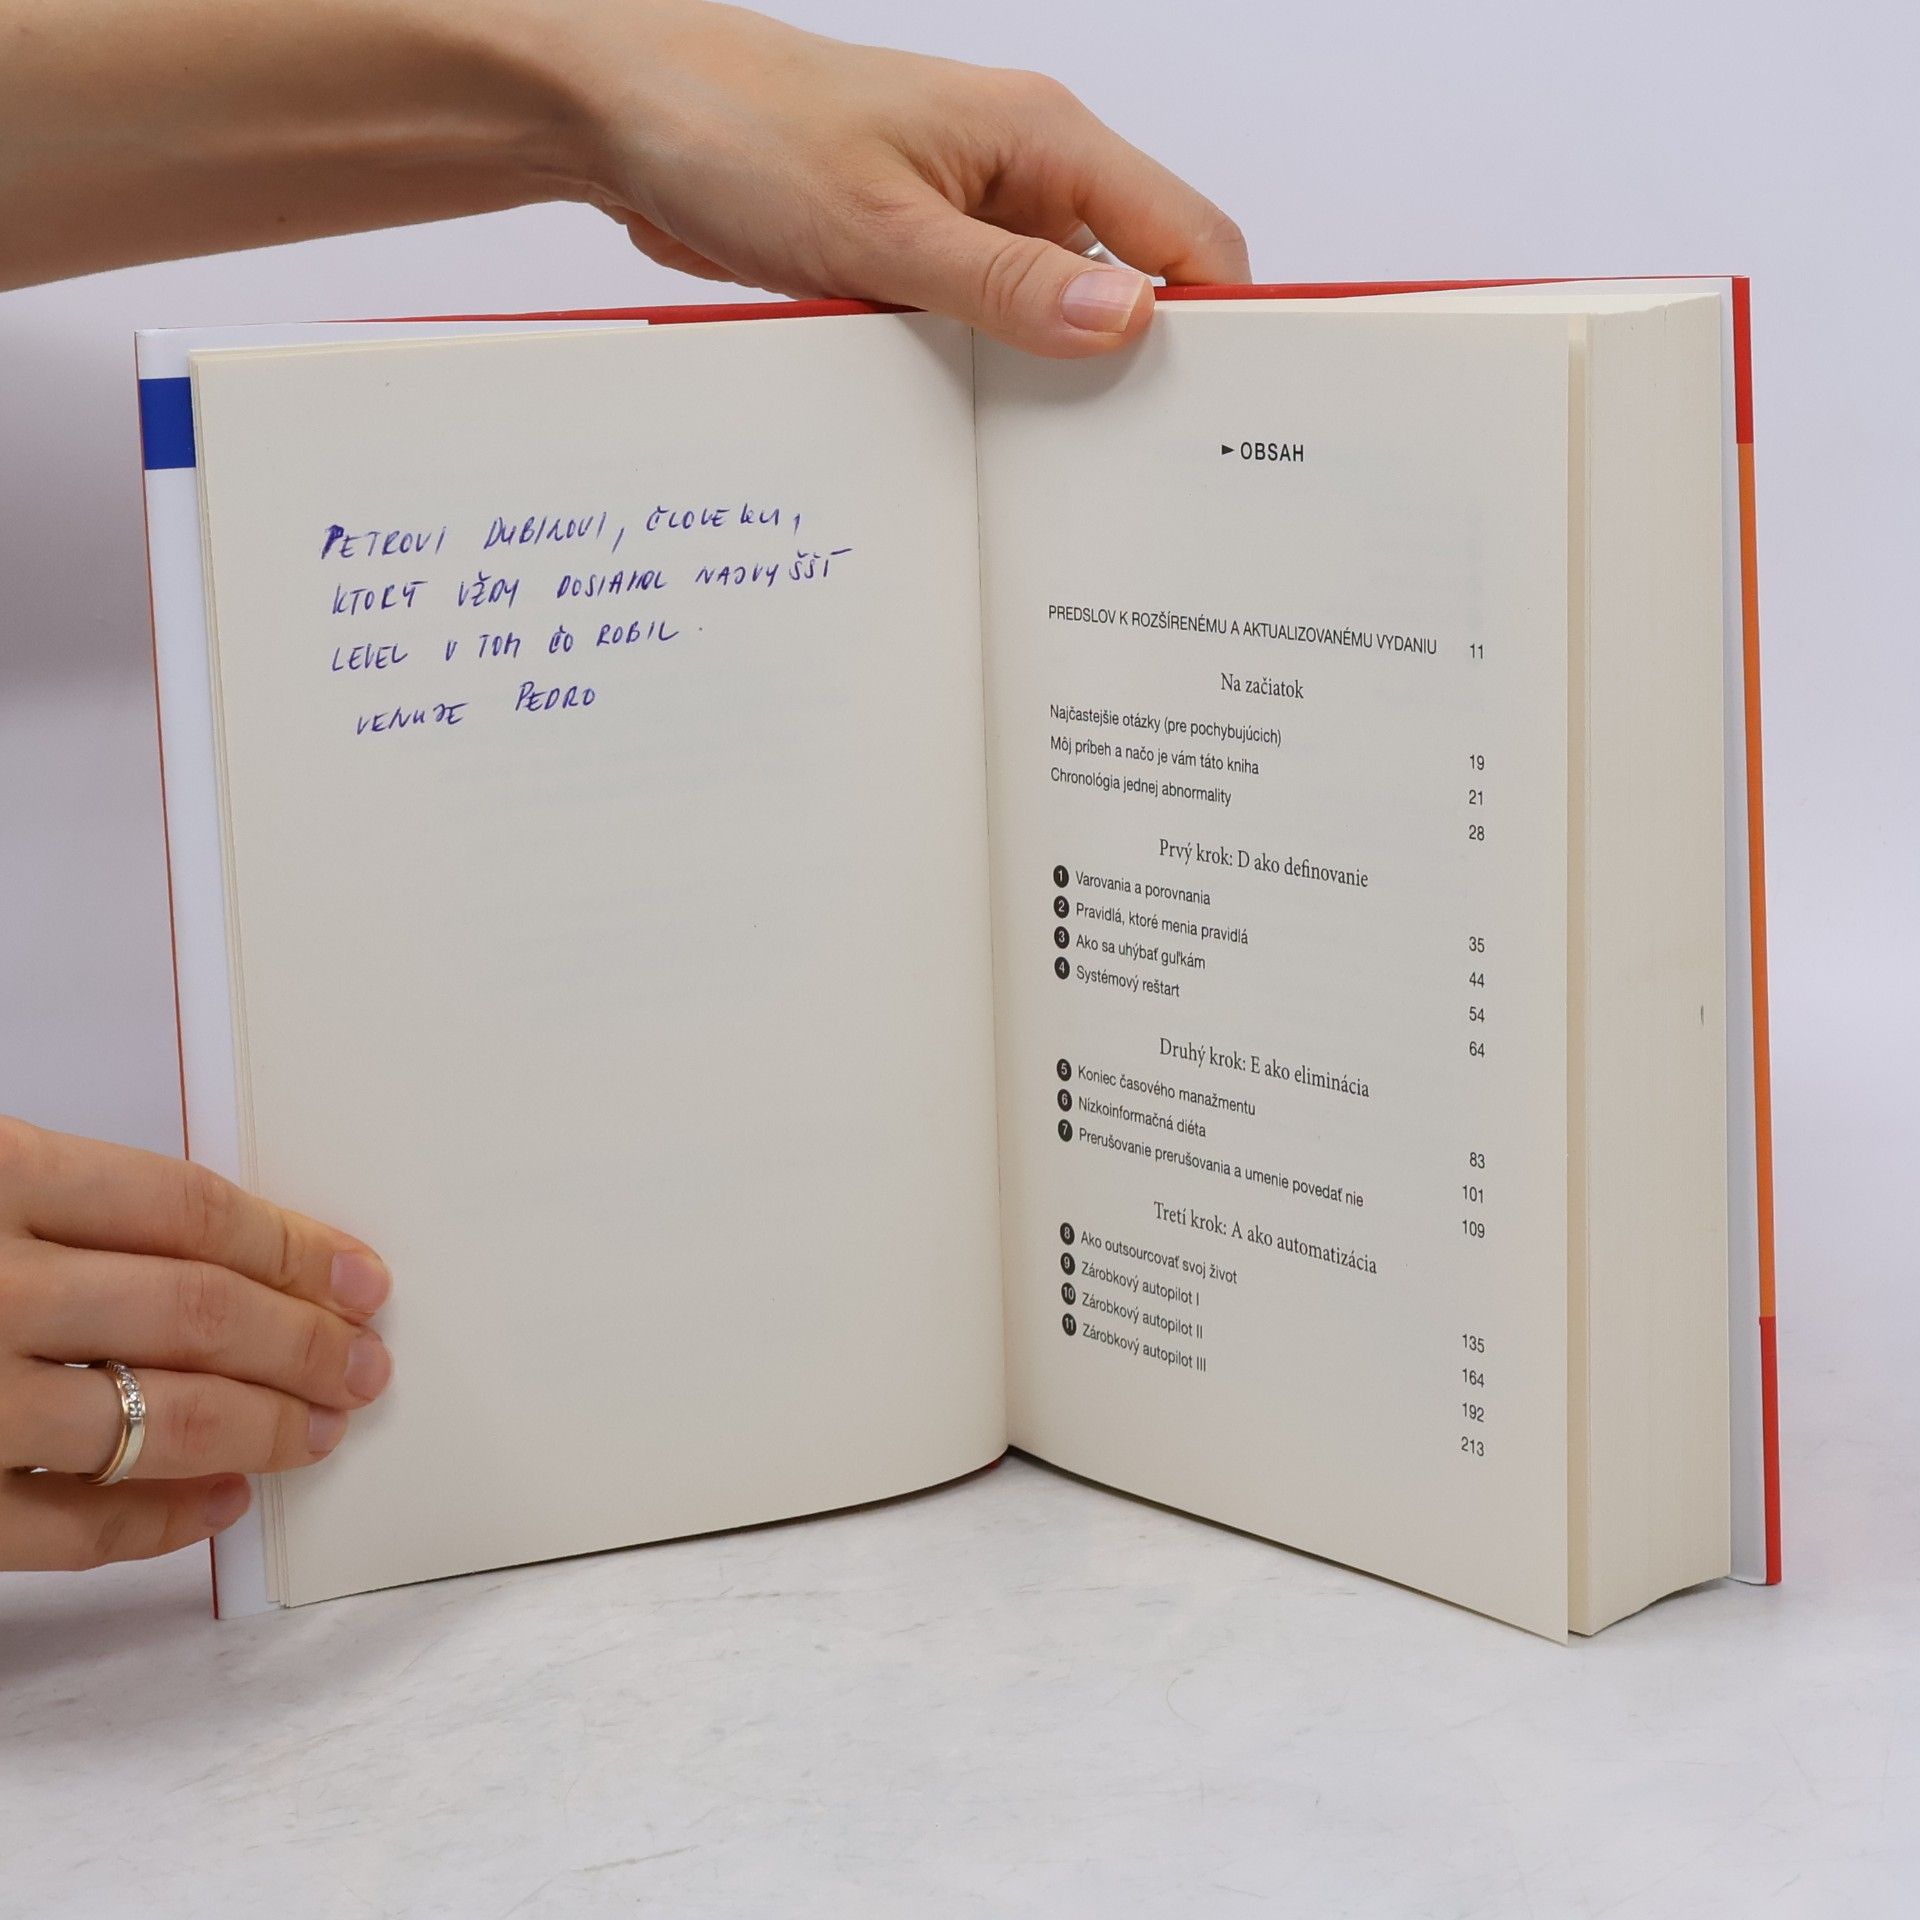 PETROVI DUBINOVI, ČLOVEKU,
KTORÝ VŽDY DOSIAHOL NAJVYŠŠÍ
LEVEL V TOM ČO ROBIL.
VENUJE PEDRO
► OBSAH
PREDSLOV K ROZŠÍRENÉMU A AKTUALIZOVANÉMU VYDANIU 11
Na začiatok
Najčastejšie otázky (pre pochybujúcich) 19
Môj príbeh a načo je vám táto kniha 21
Chronológia jednej abnormality 28
Prvý krok: D ako definovanie
1 Varovania a porovnania 35
2 Pravidlá, ktoré menia pravidlá 44
3 Ako sa uhýbať guľkám 54
4 Systémový reštart 64
Druhý krok: E ako eliminácia
5 Koniec časového manažmentu 83
6 Nízkoinformačná diéta 101
7 Prerušovanie prerušovania a umenie povedať nie 109
Tretí krok: A ako automatizácia
8 Ako outsourcovať svoj život 135
9 Zárobkový autopilot I 164
10 Zárobkový autopilot II 192
11 Zárobkový autopilot III 213